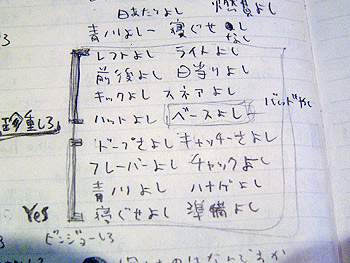 日あたりよし 燃費よし
青川よし 寝ぐせなし
レフトよし ライトよし
前後よし 日当りよし
キックよし スネアよし
ハットよし ベースよし
珍重しろ
ドープさよし キャッチーさよし
フレーバーよし チャックよし
青川よし ハナゲよし
Yes 寝ぐせよし 準備よし
ビンジョーしろ